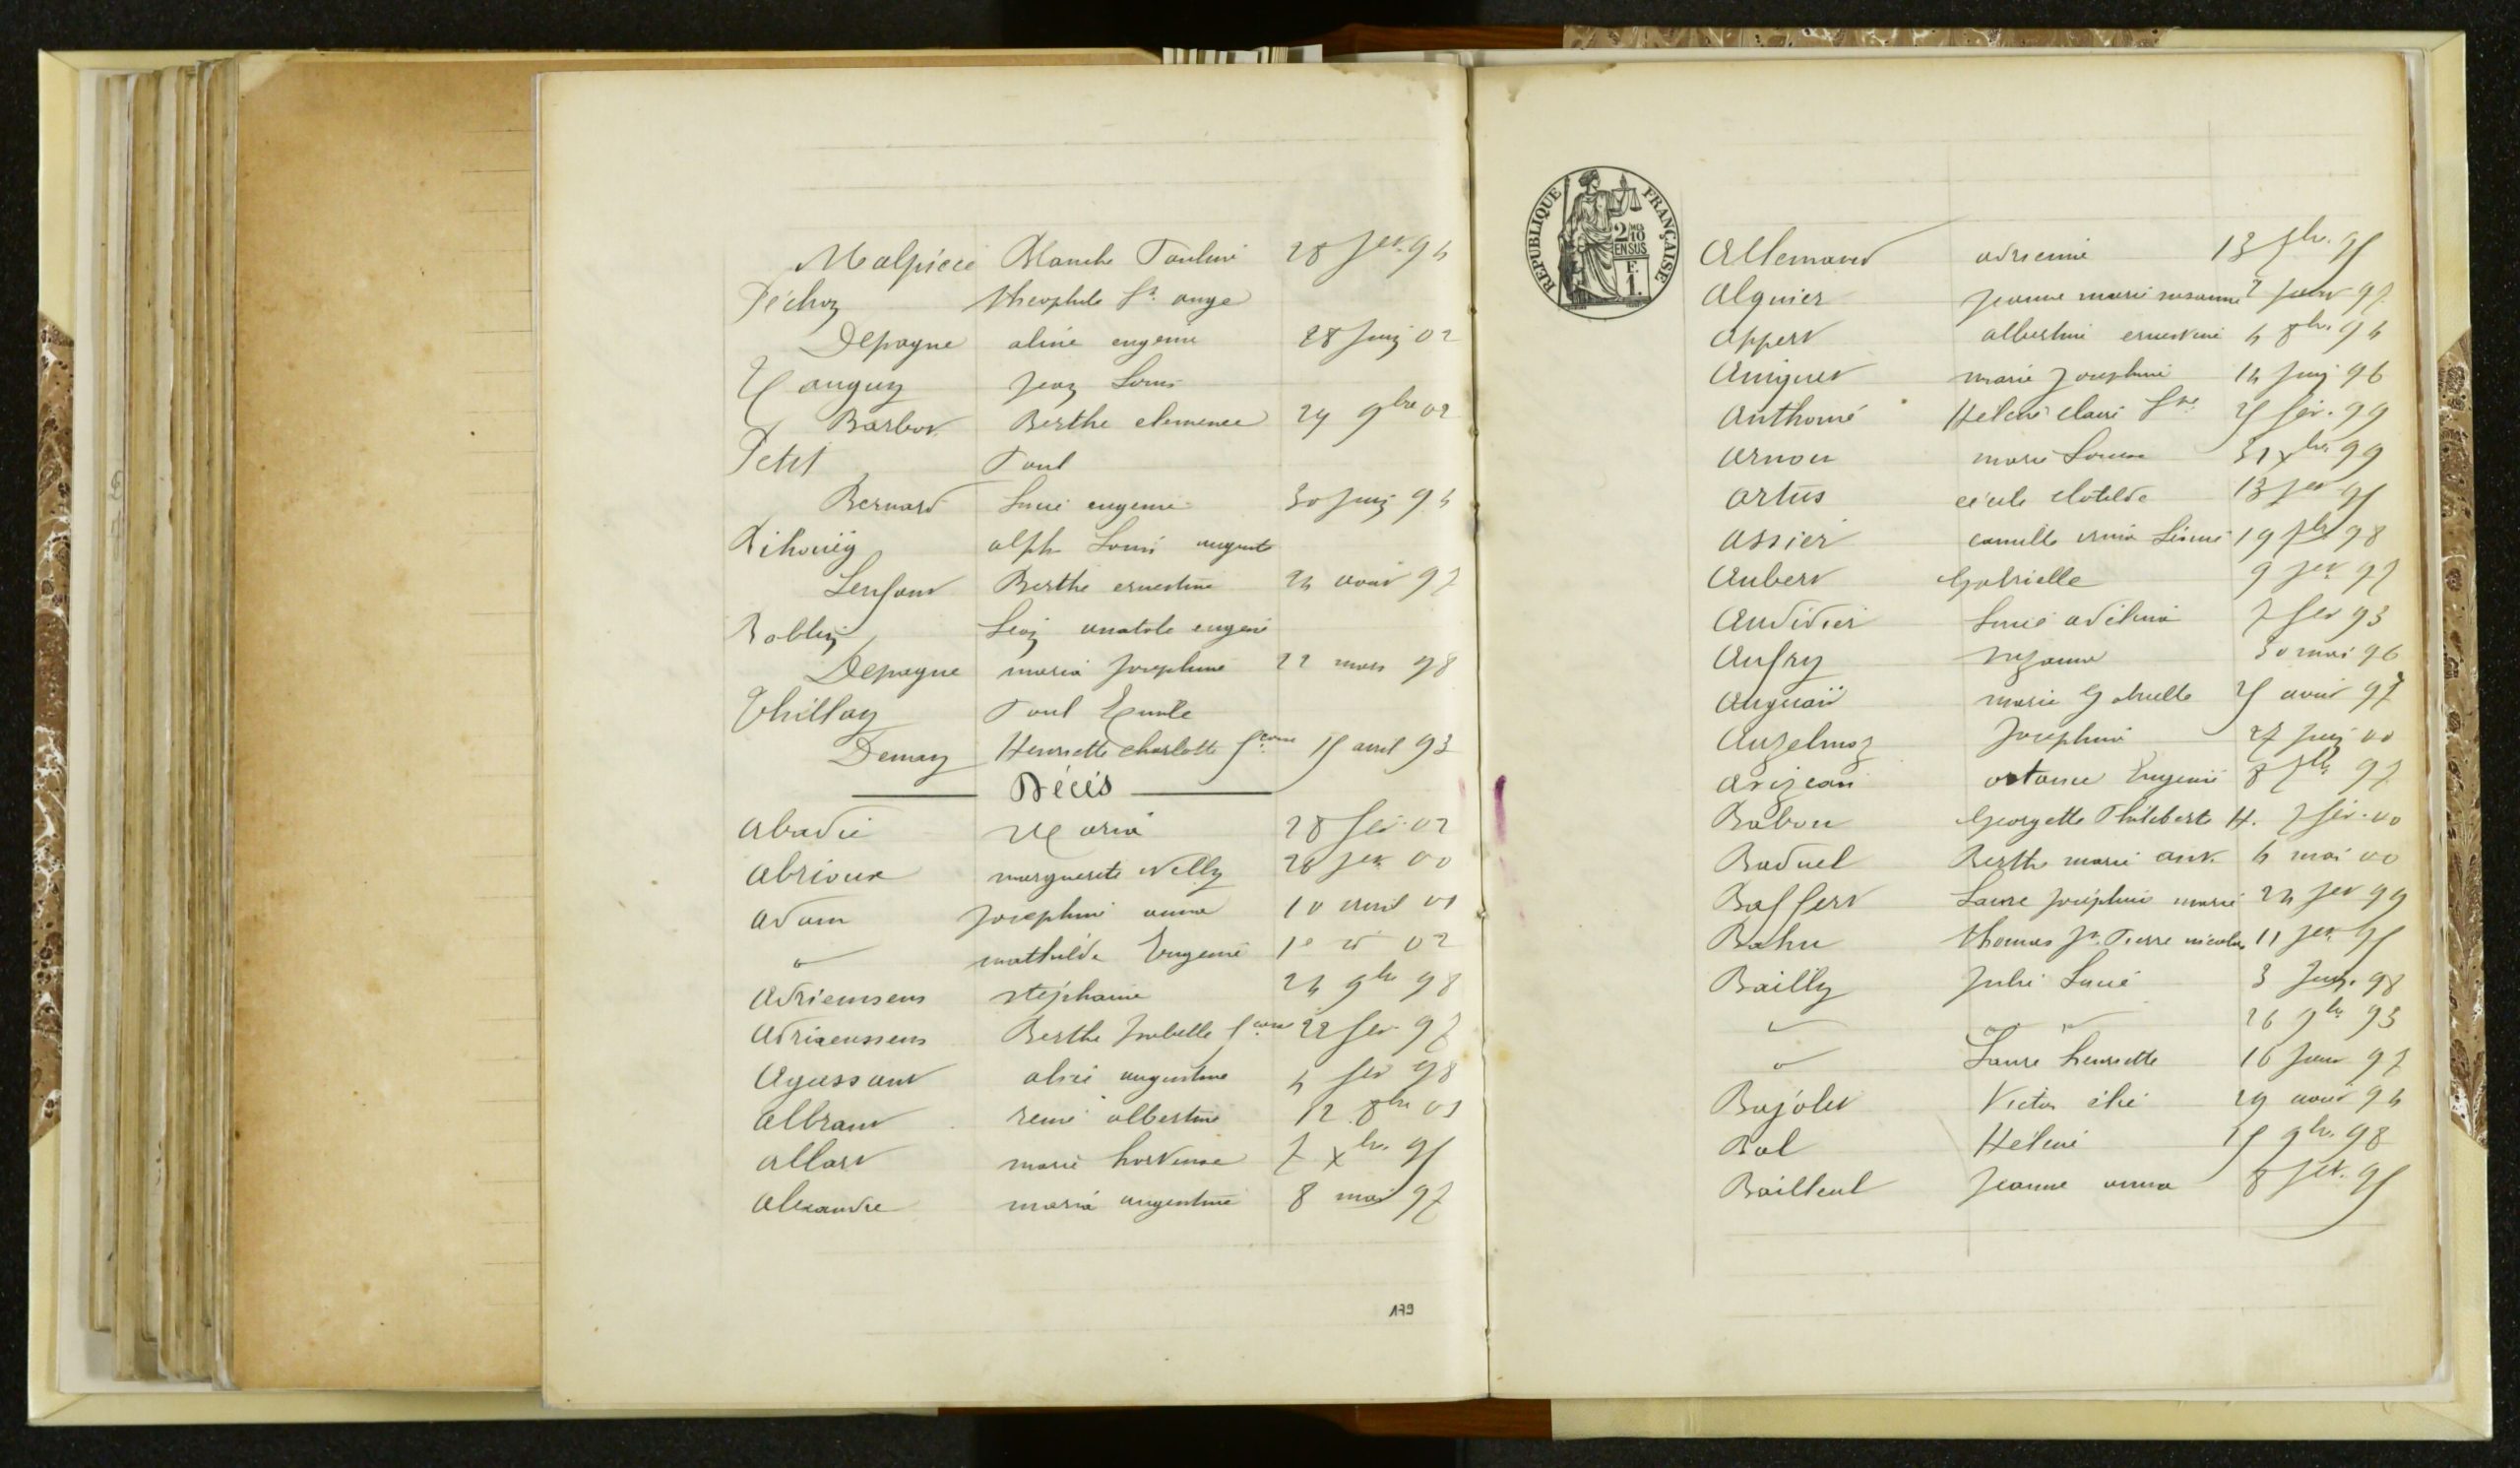 Malpièce Blanche Pauline 28 fev. 94
Péchoz théophile fd ange
Depagne aline eugenie 28 juin 02
Tanguy Jean Louis
Barbot Berthe clemence 29 9bre 02
Petit Paul
Bernard Lucie eugenie 30 juin 94
Rihouëy alph Louis auguste
Lenfant Berthe ernestine 24 aout 97
Roblin Léon anatole eugène
Depagne maria Josephine 22 mars 98
Thillay Paul Emile
Demay Henriette charlotte 15 avril 93
Décès
Abadie Maria 28 fev. 02
Abrioux marguerite Nelly 26 jer 00
Adam Josephine anna 10 avril 01
" mathilde Eugenie 1e d° 02
Adriensens stéphanie 24 9bre 98
Adriaenssens Berthe Isabelle 22 fev 97
Agassant alice augustine 4 fev 98
Albrant renée albertine 12 8bre 01
Allart marie hortense 7 xbre 95
Alexandre maria augustine 8 mai 97
179
REPUBLIQUE FRANÇAISE
2/10
EN SUS
F.
1.
Allemand adrienne 13 95
Alquier Jeanne marie susanne 2 97
Appert albertine ernestine 4 8bre 94
Amiguet marie Josephine 14 juin 96
Anthomé Helène claire 25 fév. 99
Arnou marie Louise 31 xbre 99
Artus cécile clotilde 13 95
Assier camille 19 7bre 98
Aubert Gabrielle 9 jer 97
Audidier Lucie adelina 7 fev 93
Aufry suzanne 30 mai 96
Auguaü marie Gabrielle 25 aout 97
Auzelmoz Josephine 27 juin 00
Avizeau ortance Eugenie 8 7bre 97
Babou Georgette Philiberte H. 7 fév. 00
Baduel Berthe marie ant. 4 mai 00
Baffert Laure joséphine marie 24 jer 99
Bahu thomas Jn Pierre nicolas 11 jer 95
Bailly Julie Lucie 3 juin 98
" " " 26 9bre 93
" Laure henriette 16 97
Bajolet Victor élie 29 aout 94
Bal Hélène 15 9bre 98
Bailleul Jeanne anna 8 95